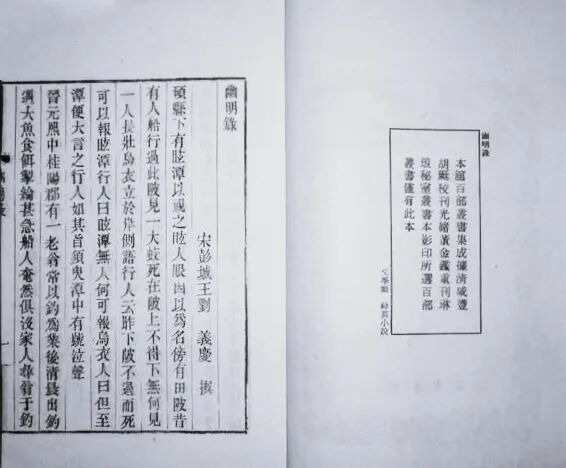 幽明錄
本館百部叢書集成據清咸豐
胡珽校刊光緒董金鑑重刊琳
琅秘室叢書本影印所選百部
叢書僅有此本
文學類 神異小說
幽明錄
宋彭城王劉 義慶 撰
碩縣下有眩潭以視之眩人眼因以為名傍有田陂昔
有人船行過此陂見一大蛟死在陂上不得下無何見
一人長壯烏衣立於岸側語行人云昨下陂不過而死
可以報眩潭行人曰眩潭無人何可報烏衣人曰但至
潭便大言之行人如其旨須臾潭中有號泣聲
晉元熙中桂陽郡有一老翁常以釣為業後清晨出釣
遇大魚食餌掣綸甚急船人奄然俱沒家人尋翁于釣